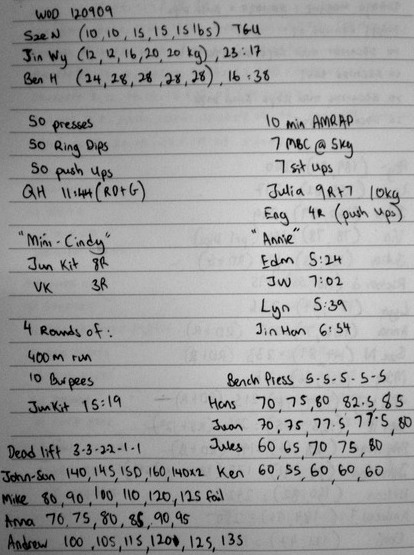 WOD 120909
Sze N (10, 10, 15, 15, 15 lbs) TGU
Jin Wy (12, 12, 16, 20, 20 kg), 23:17
Ben H (24, 28, 28, 28, 28), 16:38
50 presses
50 Ring Dips
50 push ups
QH 11:44 (RD+G)
10 min AMRAP
7 MBC @ 5kg
7 sit ups
Julia 9R+7 10kg
Eng 4R (push ups)
"Mini-Cindy"
Jun Kit 8R
VK 3R
"Annie"
Edm 5:24
JW 7:02
Lyn 5:39
Jin Han 6:54
4 Rounds of:
400m run
10 Burpees
JunKit 15:19
Bench Press 5-5-5-5-5
Hans 70, 75, 80, 82.5, 85
Juan 70, 75, 77.5, 77.5, 80
Jules 60 65, 70, 75, 80
Ken 60, 55, 60, 60, 60
Dead lift 3-3-2-2-1-1
John-San 140, 145, 150, 160, 140x2
Mike 80, 90, 100, 110, 120, 125 fail
Anna 70, 75, 80, 85, 90, 95
Andrew 100, 105, 115, 120, 125, 135